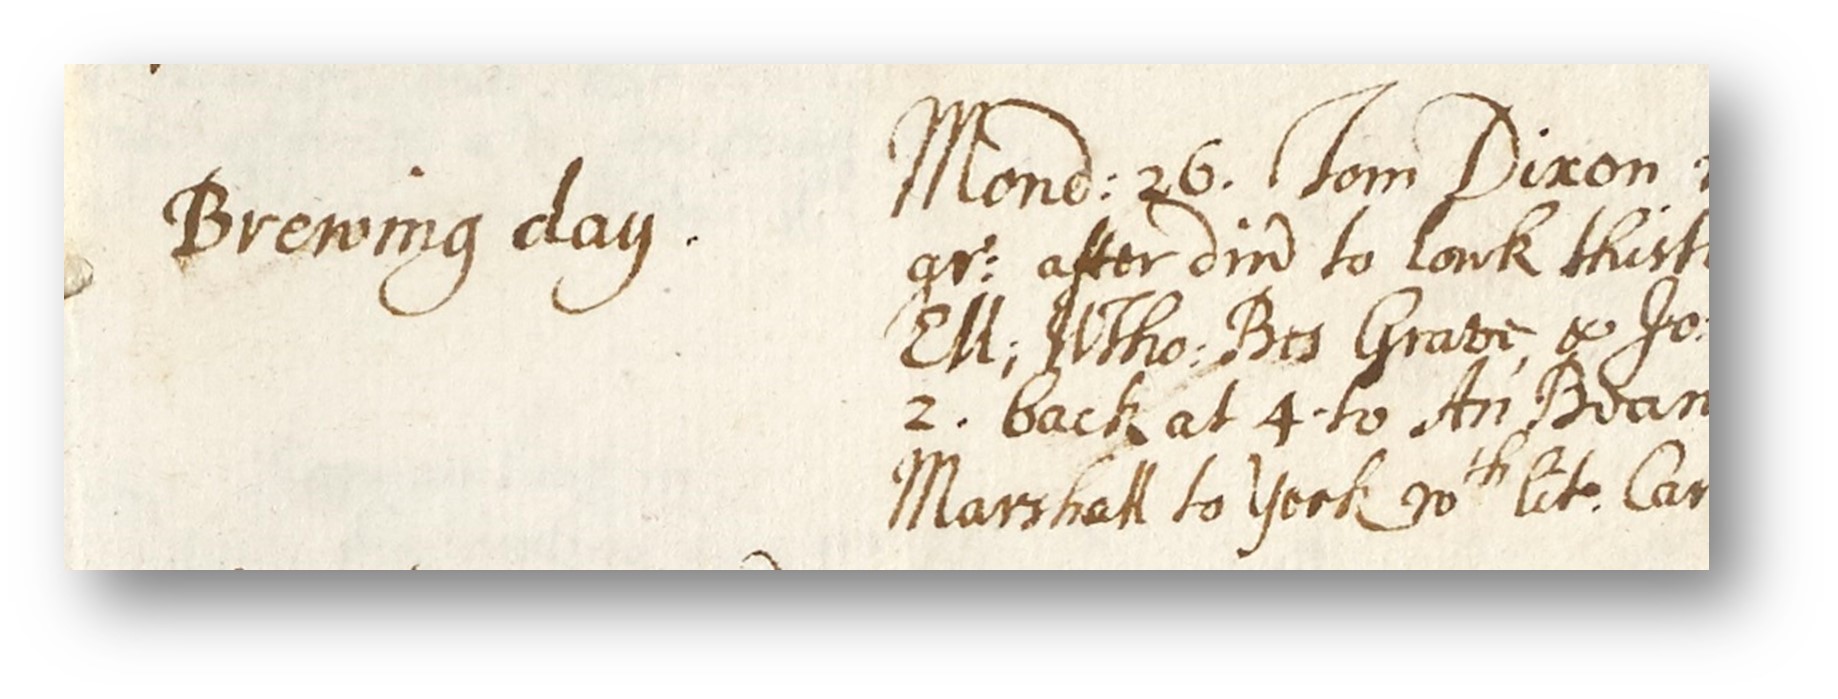 Brewing day.
Mond: 26. Tom Dixon
gr: after din to lowk thist
Ell; WTho: Bes Grave, & Jo:
2. back at 4 to An Bean
Marshall to York wth let. Car